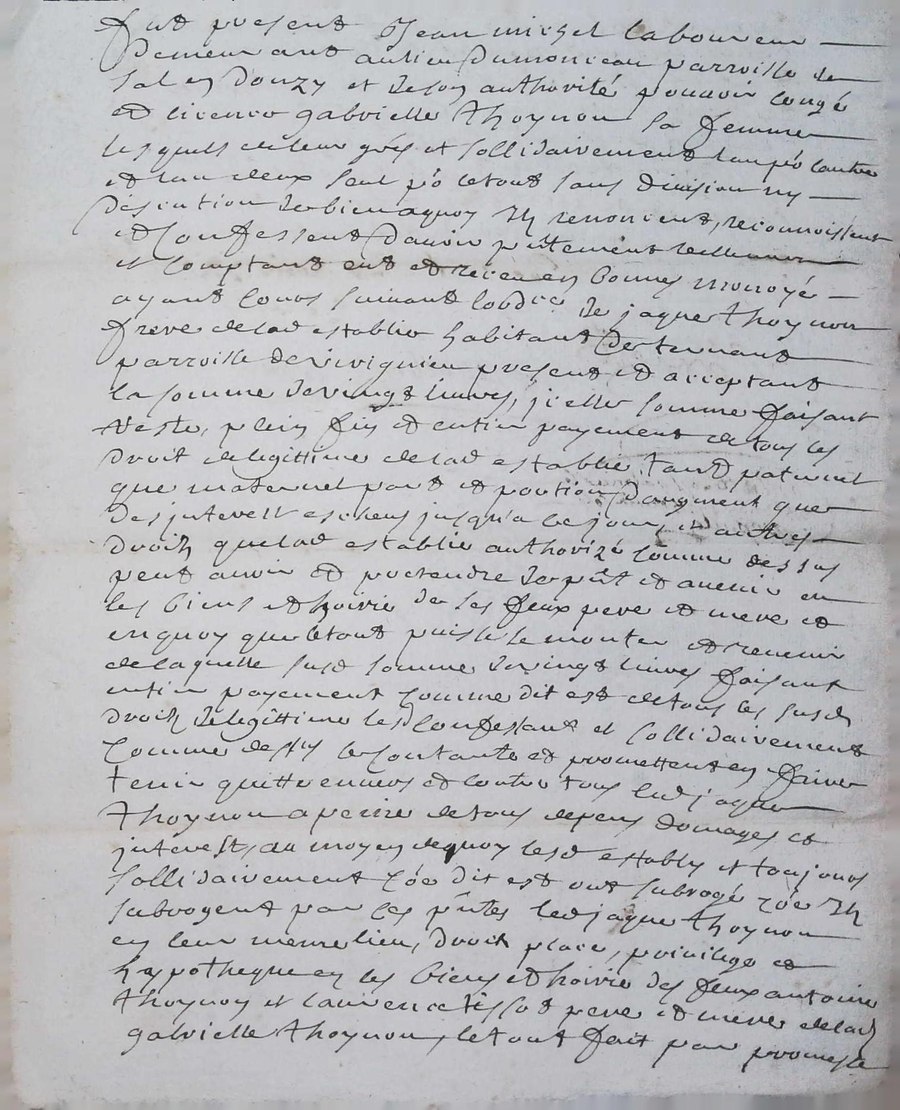 fut present Jean michel laboureur
demeurant au lieu du monceau parroisse de
Sal en Donzy et de son authorité pouvoir congé
et licence gabrielle thoynon sa femme
lesquels de leur grés et sollidairement l'un po l'autre
et l'un deux seul po le tout sans division ny
discution de bien a quoy Ih renoncent, reconnoissent
et confessent d'avoir pntement reellement
et comptant eut et receu en bonnes monoyé
ayant cours suivant lordce de jaque thoynon
frere de lad establie habitant
parroisse de present et acceptant
la somme de vingt livres, jcelle somme faisant
reste, plein fin et entier payement de tous les
droit de legittime de lad establie tant paternel
que maternel part et portion d'augment que
des interest escheus jusqu'a ce jour, et autres
droih que lad establie authorizé comme dessus
peut avoir et pretendre de pnt et avenir en
les biens et hoirie de ses feux pere et mere et
en quoy que le tout puisse se monter et revenir
de laquelle susd somme de vingt livres faisant
entier payement comme dit est de tous les susd
droih de legittime les confessant et sollidairement
comme dessus se contante et promettent en faire
tenir quitte envers et contre tous led jaque
thoynon a peine de tous depens domages et
jnterest, au moyen de quoy lesd establys et toujours
sollidairement cõe dit est ont subrogé cõe Ih
subrogent par ces pntes led jaque thoynon
en leur meme lieu, droit place, privilege et
hypotheque en les biens et hoirie des feux antoine
thoynon et laurence tissot pere et mere de lad
gabrielle thoynon, le tout fait par promesse